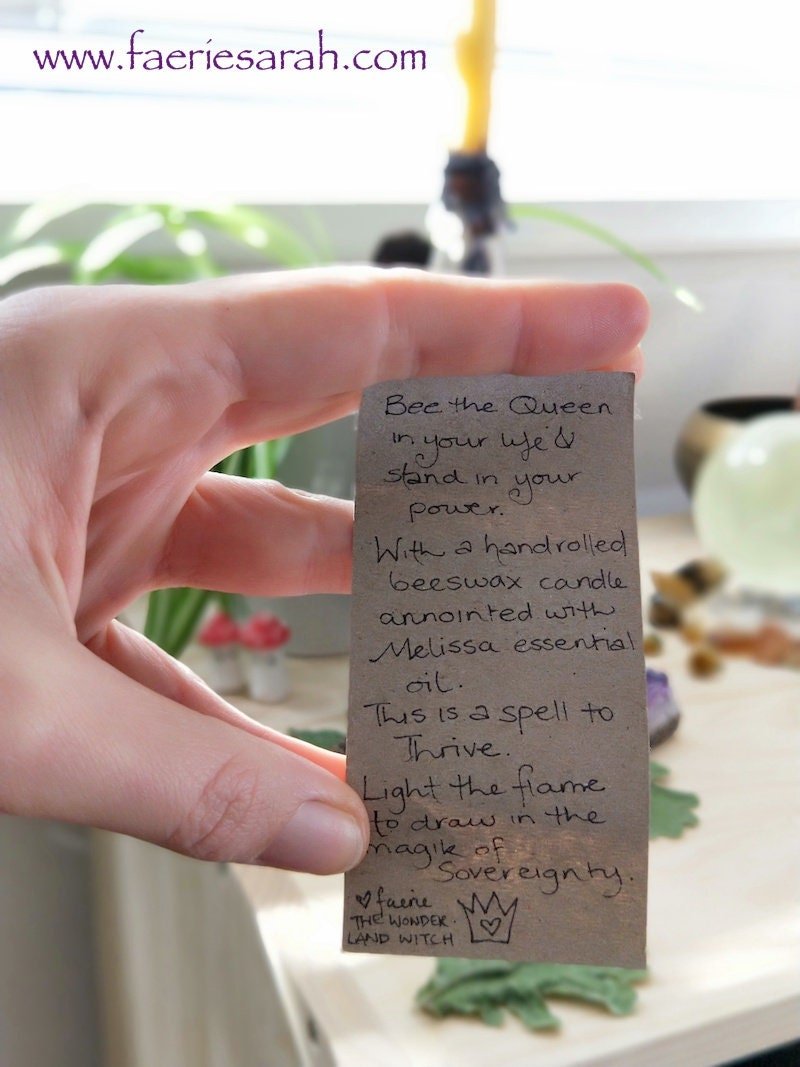 www.faeriesarah.com
Bee the Queen
in your life &
stand in your
power.
With a handrolled
beeswax candle
annointed with
Melissa essential
oil.
This is a spell to
Thrive.
Light the flame
to draw in the
magik of
Sovereignty.
♡ faerie
THE WONDER
LAND WITCH